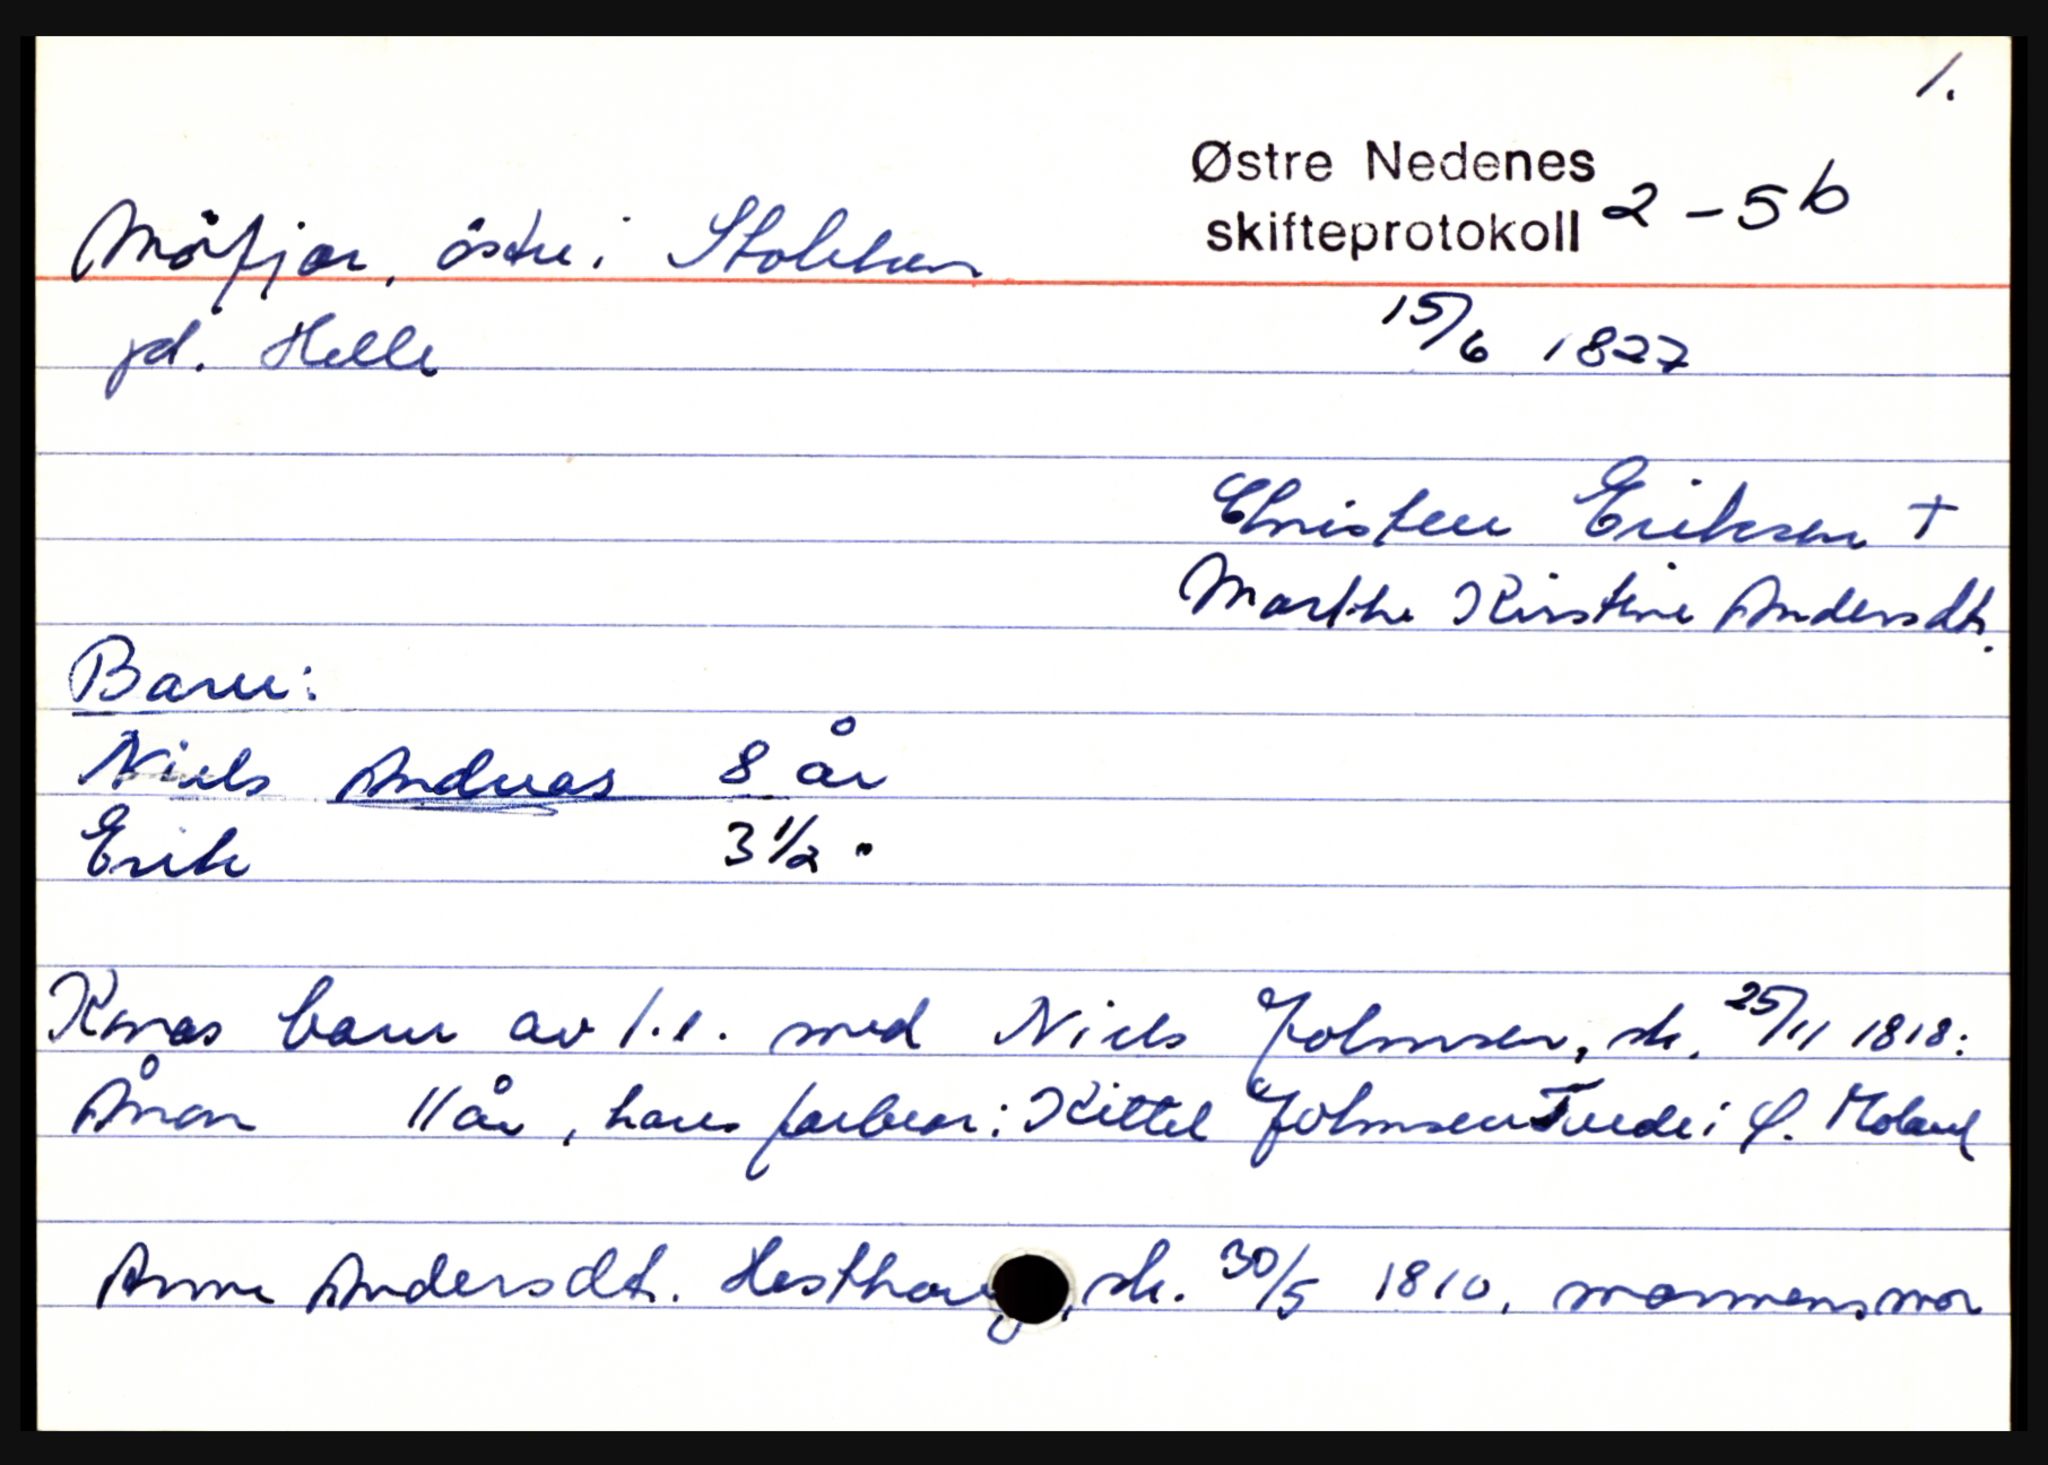 1.
Østre Nedenes
skifteprotokoll 2-5b
Möfjær, östre i Stokken
pd. Helle
15/6 1827
Christen Eriksen +
Marthe Kirstine Andersdt.
Barn:
Niels Andreas 8 år
Erik 3 1/2 "
Konas barn av 1. e. med Niels Johnsen, sk. 25/11 1818:
Ånon 11 år, hans farbror: Kittel Johnsen Tvede i Ø. Moland
Anne Andersdt. Hesthag, sk. 30/5 1810, mannens mor